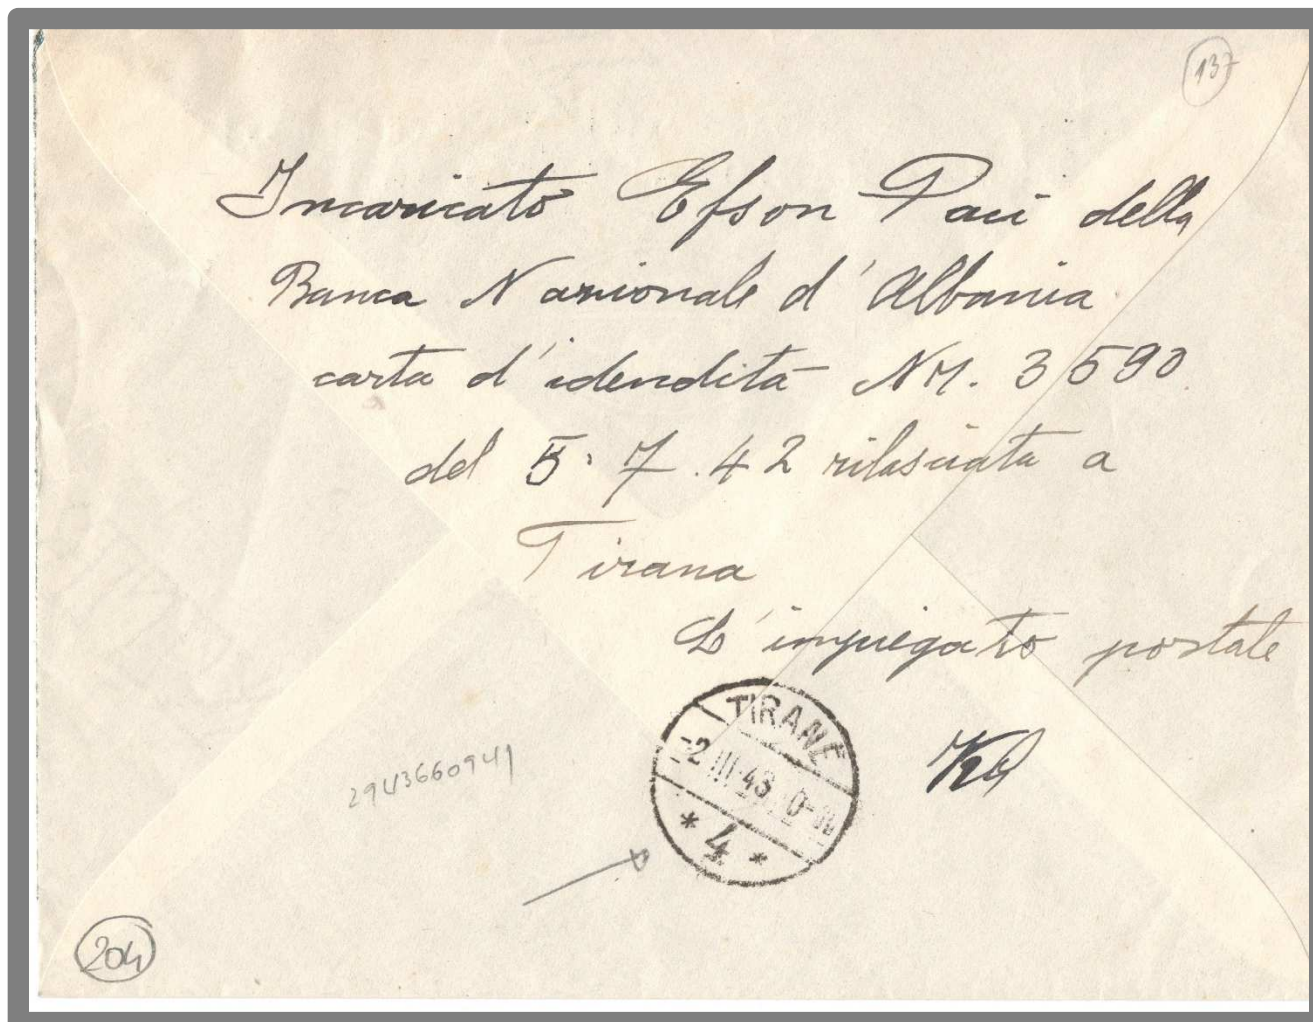 137
Incaricato Efson Paci della
Banca Nazionale d'Albania
carta d'idendità Nr. 3590
del 5.7.42 rilasciata a
Tirana
L'impiegato postale
TIRANE
-2 III 43
* 4 *
2943660941
204